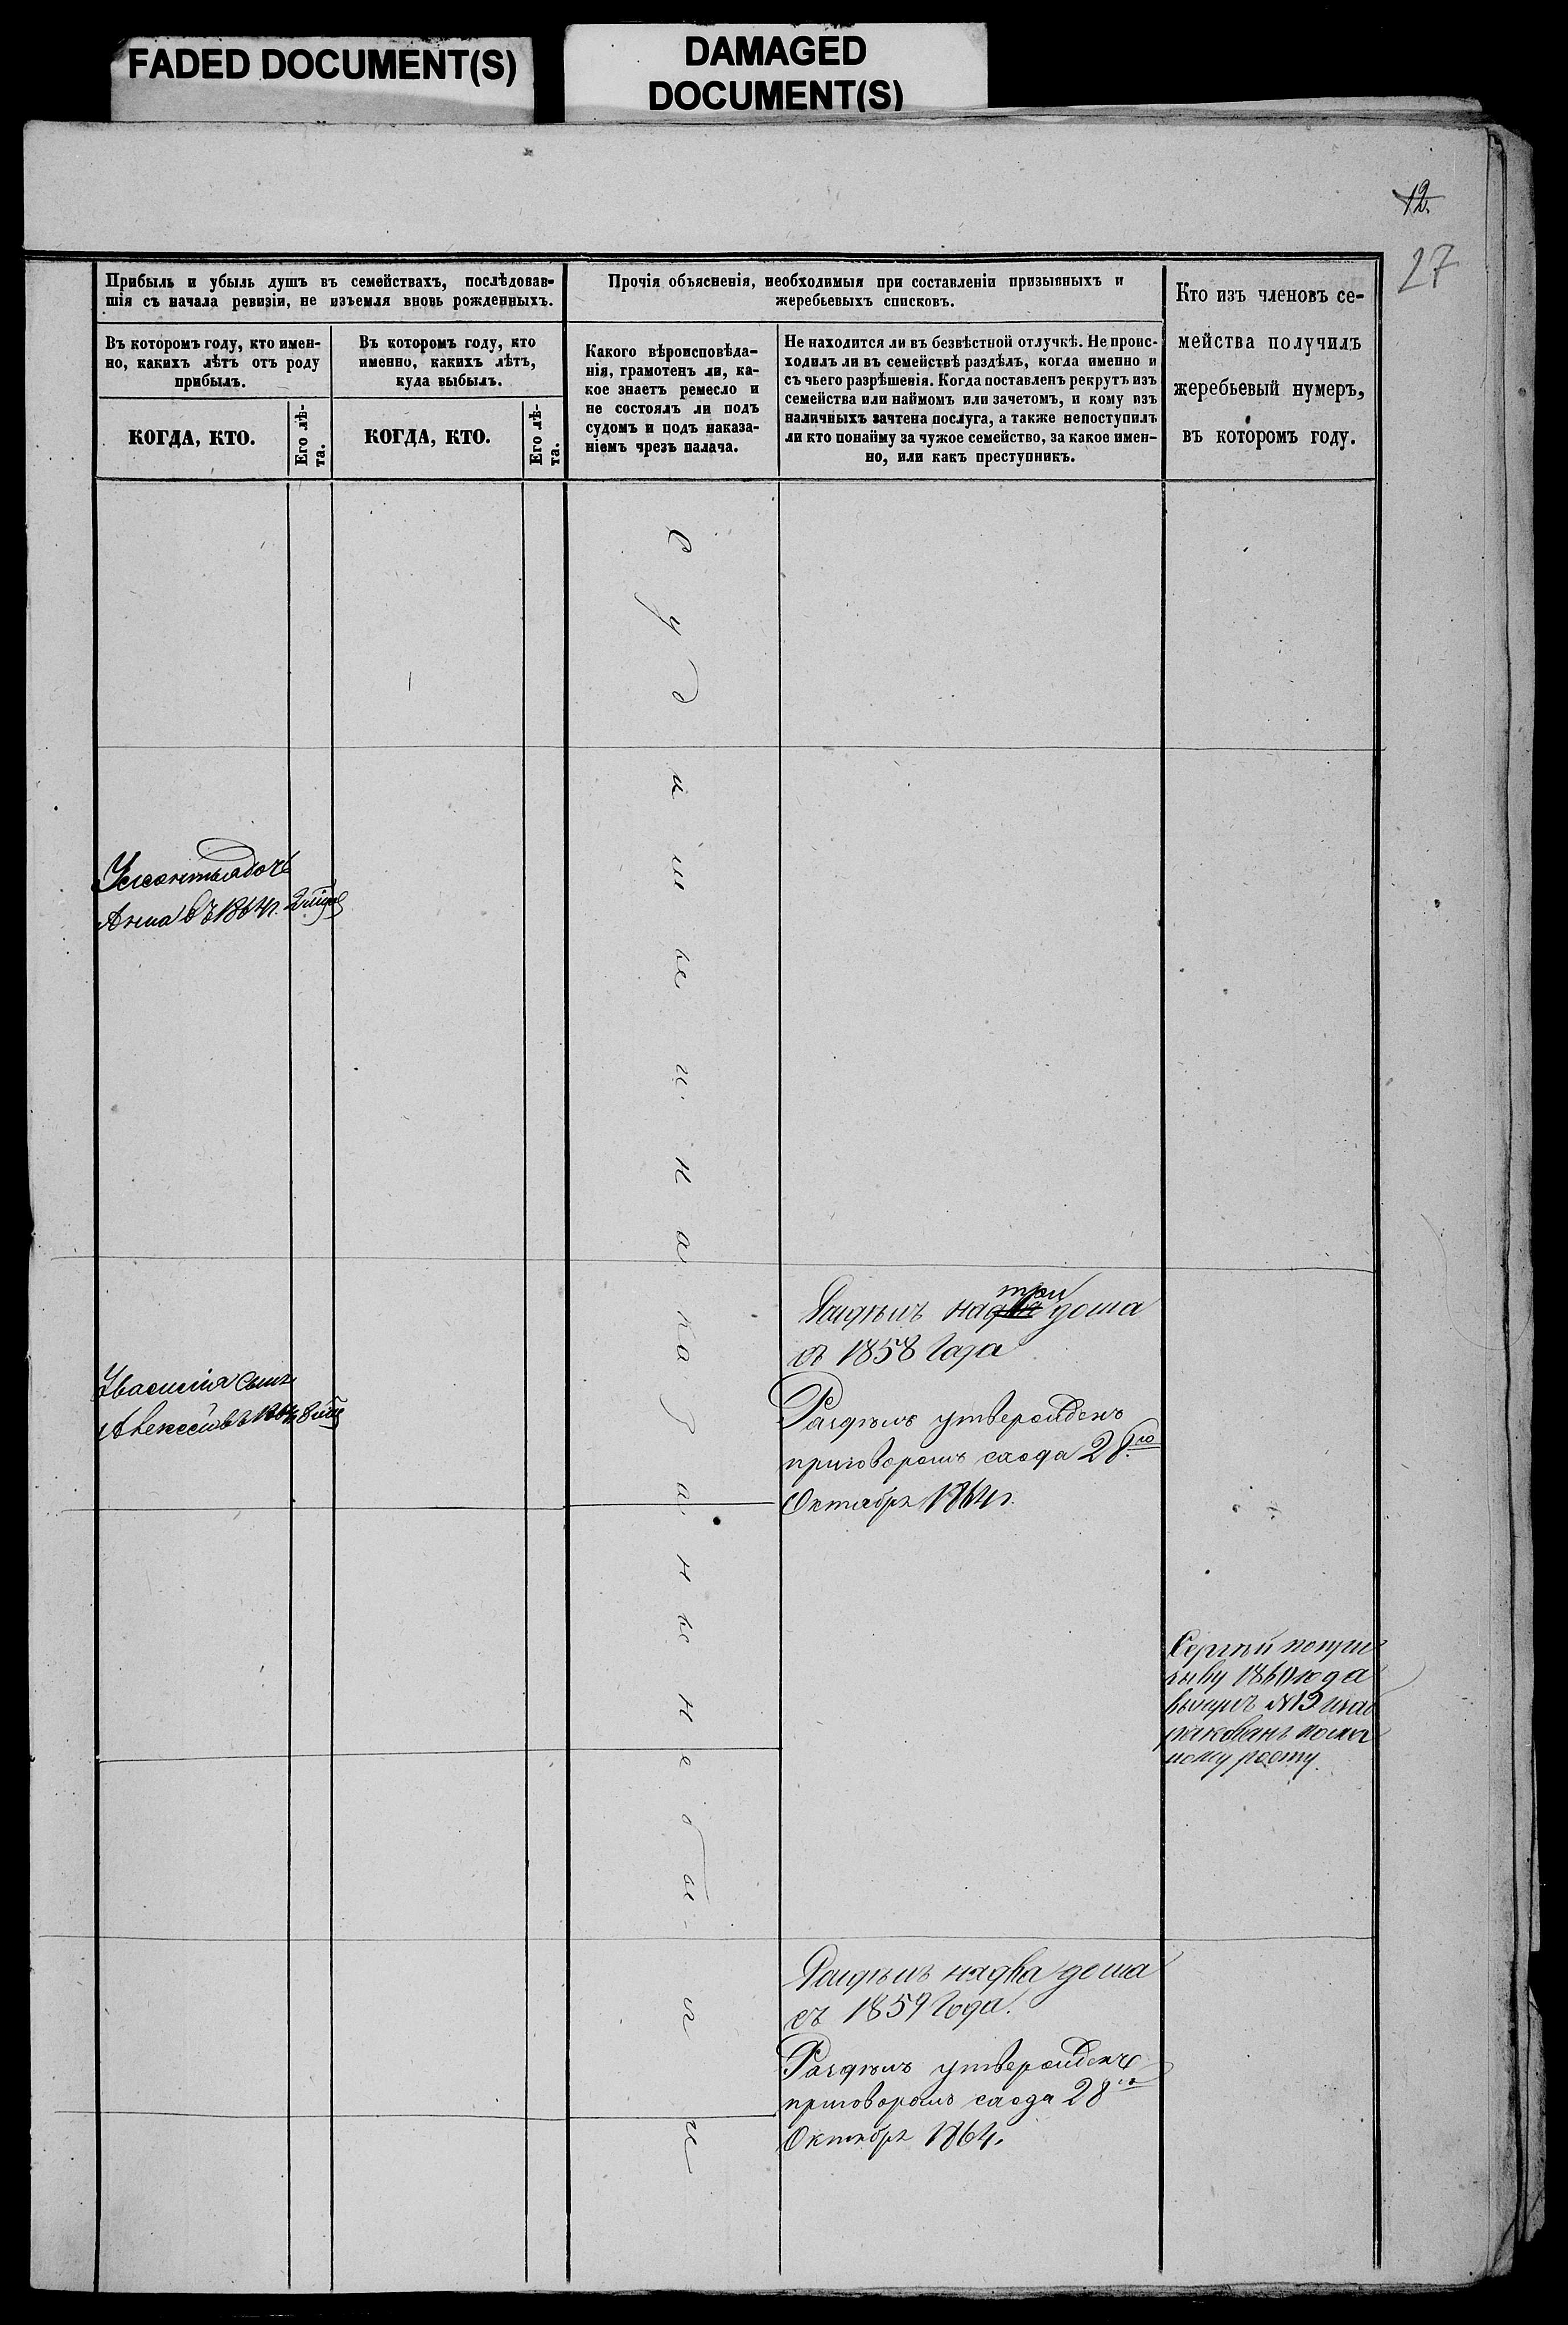 FADED DOCUMENT(S)
DAMAGED
DOCUMENT(S)
12.
27
Прибыль и убыль душъ въ семействахъ, послѣдовав-
шія съ начала ревизіи, не изъемля вновь рожденныхъ.
Прочія объясненія, необходимыя при составленіи призывныхъ и
жеребьевыхъ списковъ.
Кто изъ членовъ се-
мейства получилъ
жеребьевый нумеръ,
въ которомъ году.
Въ которомъ году, кто имен-
но, какихъ лѣтъ отъ роду
прибылъ.
Въ которомъ году, кто
именно, какихъ лѣтъ,
куда выбылъ.
Какого вѣроисповѣда-
нія, грамотенъ ли, ка-
кое знаетъ ремесло и
не состоялъ ли подъ
судомъ и подъ наказа-
ніемъ чрезъ палача.
Не находится ли въ безвѣстной отлучкѣ. Не проис-
ходилъ ли въ семействѣ раздѣлъ, когда именно и
съ чьего разрѣшенія. Когда поставленъ рекрутъ изъ
семейства или наймомъ или зачетомъ, и кому изъ
наличныхъ зачтена послуга, а также непоступилъ
ли кто понайму за чужое семейство, за какое имен-
но, или какъ преступникъ.
КОГДА, КТО.
Его лѣ-
та.
КОГДА, КТО.
Его лѣ-
та.
дочь
Анна въ 1864 г.
Увасилія сынъ
Алексѣй въ
три
Раздѣлъ на дома
съ 1858 Года
Раздѣлъ утвержденъ
приговоромъ схода 28го
Октября 1864 г.
Сергѣй попри
зыву года
вынулъ №
ракованъ помал
ному росту.
Раздѣлъ надва дома
съ 1859 Года.
Раздѣлъ утвержденъ
приговоромъ схода 28го
Октября 1864.